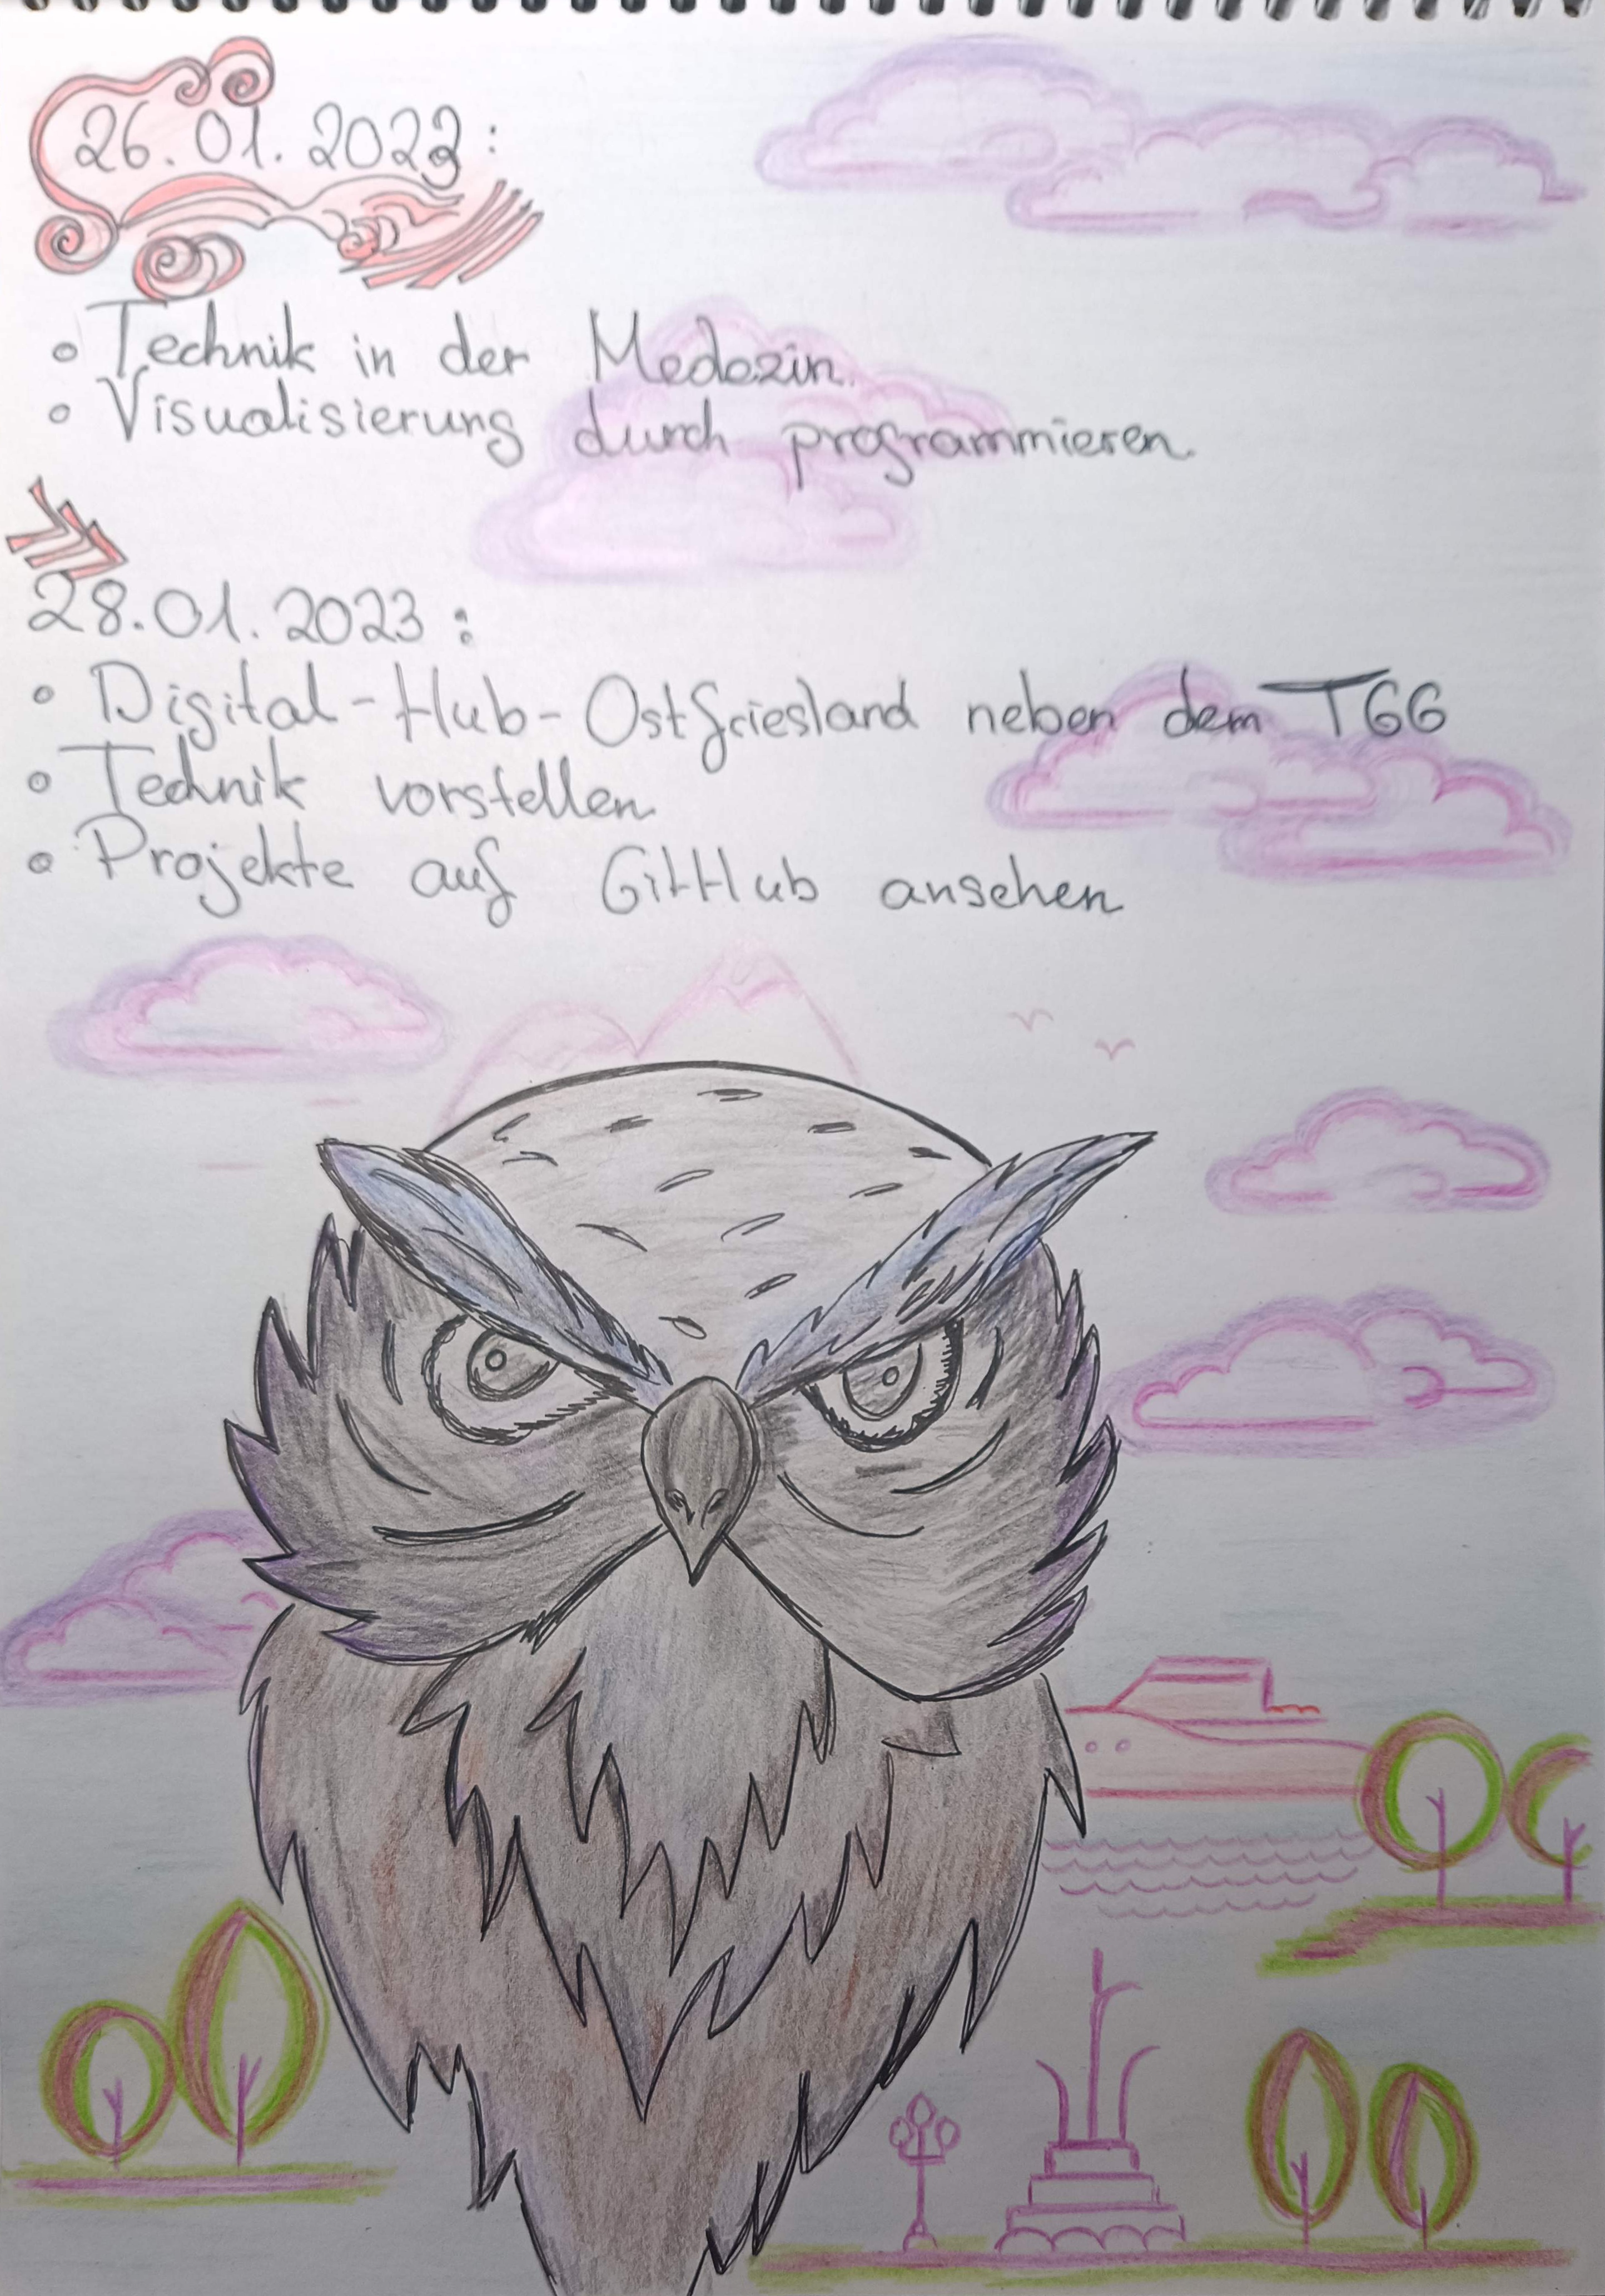 26.01.2023:
• Technik in der Medezin.
• Visualisierung durch programmieren.
28.01.2023:
• Digital-Hub-Ostfriesland neben dem TGG
• Technik vorstellen
• Projekte auf GitHub ansehen